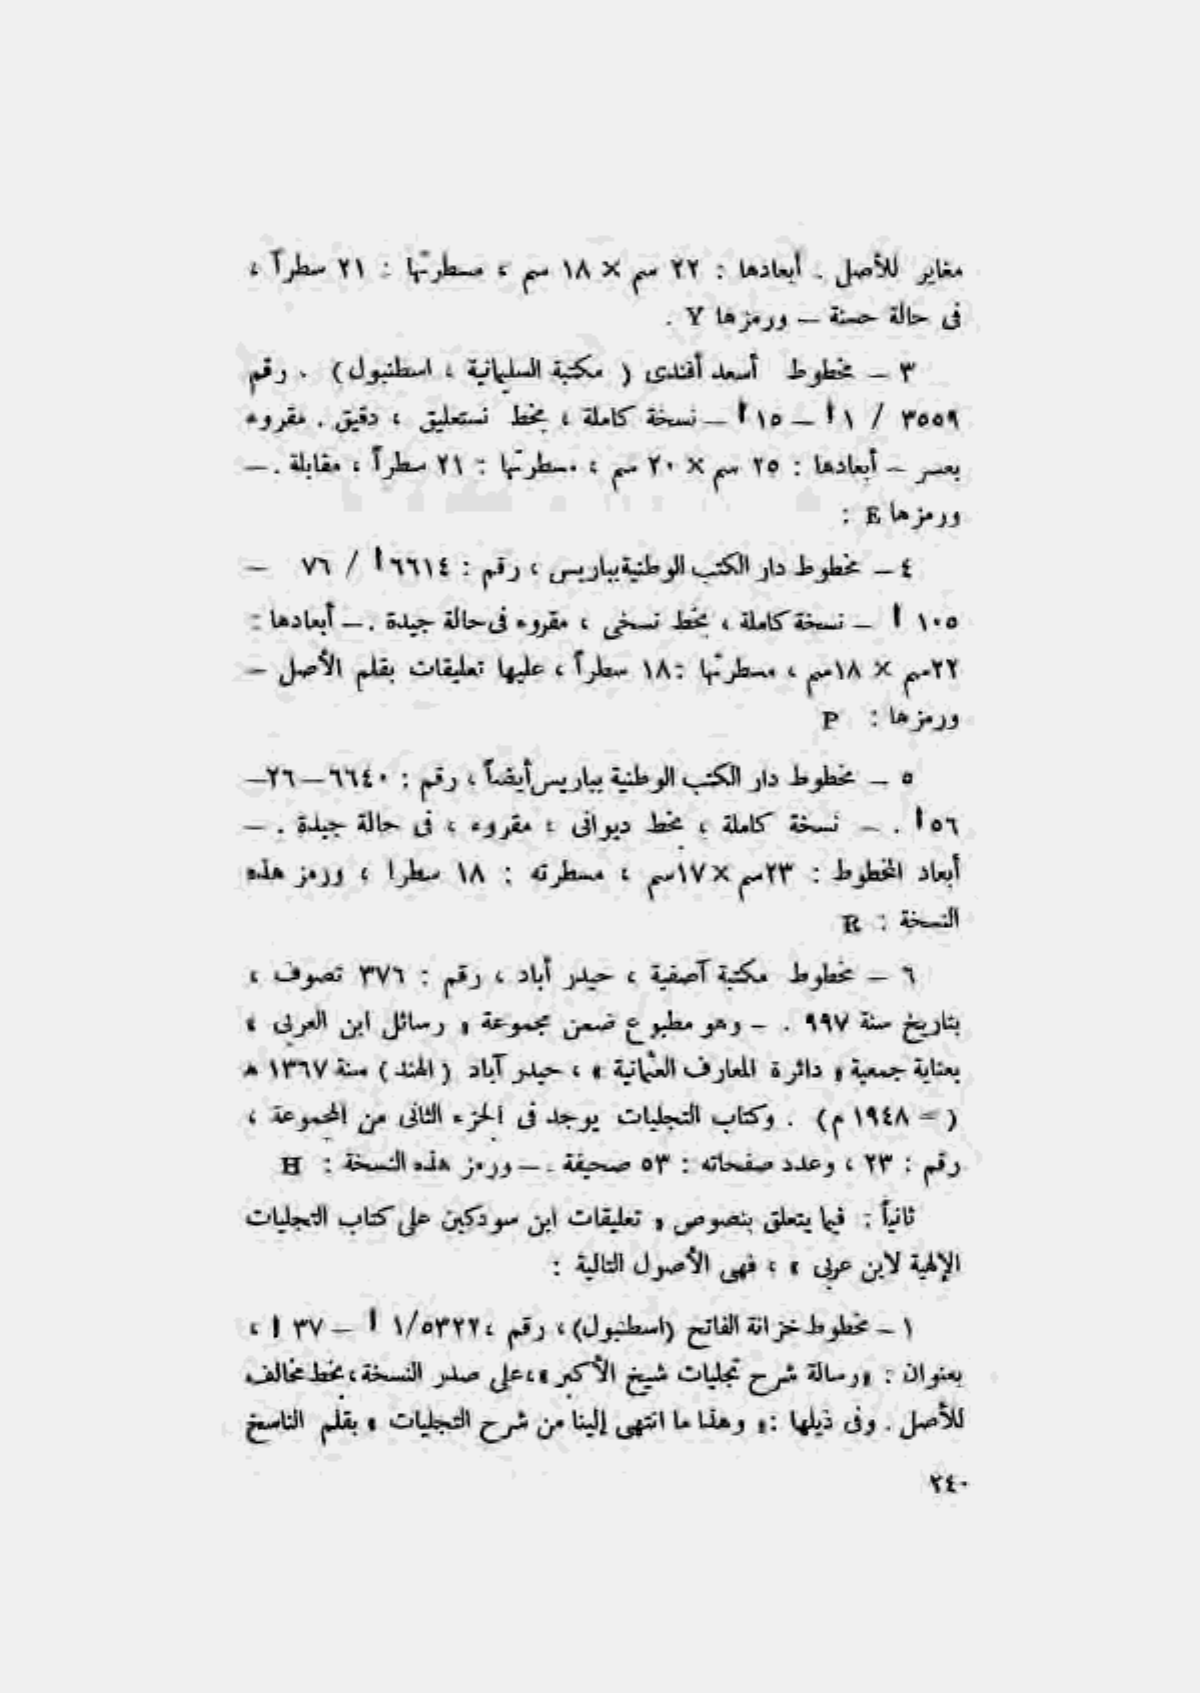 مغاير للأصل . أبعادها : ٢٢ سم × ١٨ سم ، مسطرتها : ٢١ سطراً ،
فى حالة حسنة – ورمزها Y .
٣ – مخطوط أسعد أفندى ( مكتبة السليمانية ، اسطنبول ) . رقم
٣٥٥٩ / ١ أ – ١٥ أ – نسخة كاملة ، بخط نستعليق ، دقيق . مقروء
بعسر – أبعادها : ٢٥ سم × ٢٠ سم ، مسطرتها : ٢١ سطراً ، مقابلة . –
ورمزها E :
٤ – مخطوط دار الكتب الوطنية بباريس ، رقم : ٦٦١٤ أ / ٧٦ –
١٠٥ أ – نسخة كاملة ، بخط نسخى ، مقروء فى حالة جيدة . – أبعادها :
٢٢سم × ١٨سم ، مسطرتها : ١٨ سطراً ، عليها تعليقات بقلم الأصل –
ورمزها : P
٥ – مخطوط دار الكتب الوطنية بباريس أيضاً ، رقم : ٦٦٤٠ – ٢٦–
٥٦ أ . – نسخة كاملة ، بخط ديوانى ، مقروء ، فى حالة جيدة . –
أبعاد المخطوط : ٢٣سم × ١٧سم ، مسطرته : ١٨ سطرا ، ورمز هذه
النسخة : R
٦ – مخطوط مكتبة آصفية ، حيدر أباد ، رقم : ٣٧٦ تصوف ،
بتاريخ سنة ٩٩٧ . – وهو مطبوع ضمن مجموعة « رسائل ابن العربى »
بعناية جمعية « دائرة المعارف العثمانية » ، حيدر آباد ( الهند ) سنة ١٣٦٧ هـ
( = ١٩٤٨ م ) . وكتاب التجليات يوجد فى الجزء الثانى من المجموعة ،
رقم : ٢٣ ، وعدد صفحاته : ٥٣ صحيفة . – ورمز هذه النسخة : H
ثانياً : فيما يتعلق بنصوص « تعليقات ابن سودكين على كتاب التجليات
الإلهية لابن عربى » ، فهى الأصول التالية :
١ – مخطوط خزانة الفاتح (اسطنبول) ، رقم ، ٥٣٢٢/١ أ – ٣٧ أ ،
بعنوان : «رسالة شرح تجليات شيخ الأكبر» ، على صدر النسخة ، بخط مخالف
للأصل . وفى ذيلها : « وهذا ما انتهى إلينا من شرح التجليات » بقلم الناسخ
٢٤٠